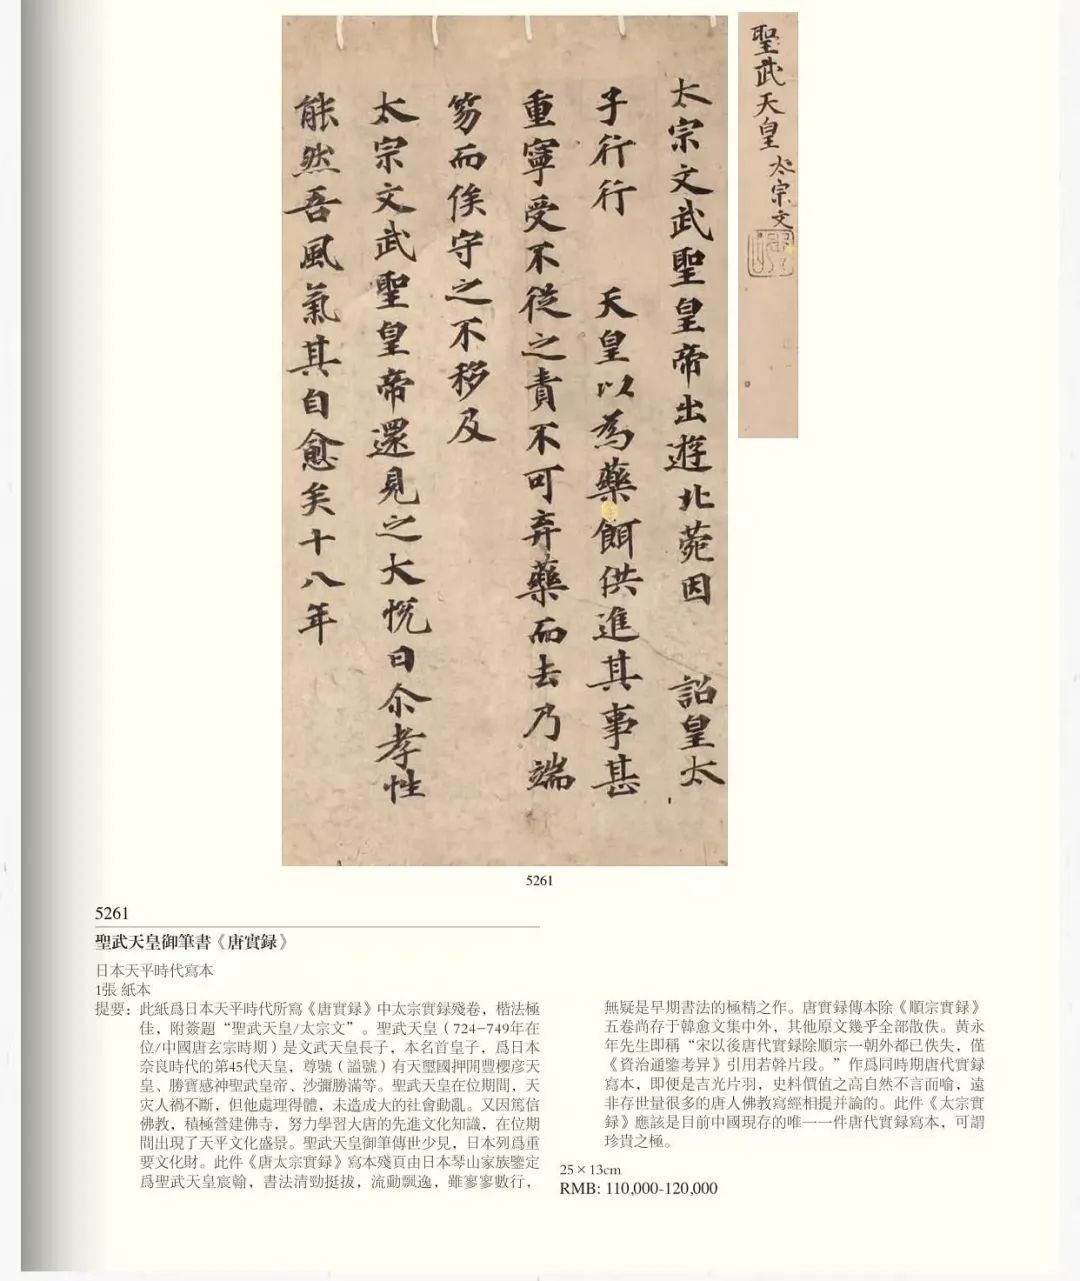 太宗文武聖皇帝出遊北菀因　詔皇太
子行行　天皇以為藥餌供進其事甚
重寧受不從之責不可弃藥而去乃端
笏而俟守之不移及
太宗文武聖皇帝還見之大悅曰尒孝性
能然吾風氣其自愈矣十八年
聖武天皇 太宗文
5261
5261
聖武天皇御筆書《唐實録》
日本天平時代寫本
1張 紙本
提要：此紙爲日本天平時代所寫《唐實録》中太宗實録殘卷，楷法極
佳，附簽題“聖武天皇/太宗文”。聖武天皇（724-749年在
位/中國唐玄宗時期）是文武天皇長子，本名首皇子，爲日本
奈良時代的第45代天皇，尊號（謚號）有天璽國押開豐櫻彦天
皇、勝寶感神聖武皇帝、沙彌勝滿等。聖武天皇在位期間，天
灾人禍不斷，但他處理得體，未造成大的社會動亂。又因篤信
佛教，積極營建佛寺，努力學習大唐的先進文化知識，在位期
間出現了天平文化盛景。聖武天皇御筆傳世少見，日本列爲重
要文化財。此件《唐太宗實録》寫本殘頁由日本琴山家族鑒定
爲聖武天皇宸翰，書法清勁挺拔，流動飄逸，雖寥寥數行，
無疑是早期書法的極精之作。唐實録傳本除《順宗實録》
五卷尚存于韓愈文集中外，其他原文幾乎全部散佚。黄永
年先生即稱“宋以後唐代實録除順宗一朝外都已佚失，僅
《資治通鑒考异》引用若幹片段。”作爲同時期唐代實録
寫本，即便是吉光片羽，史料價值之高自然不言而喻，遠
非存世量很多的唐人佛教寫經相提并論的。此件《太宗實
録》應該是目前中國現存的唯一一件唐代實録寫本，可謂
珍貴之極。
25×13cm
RMB: 110,000-120,000